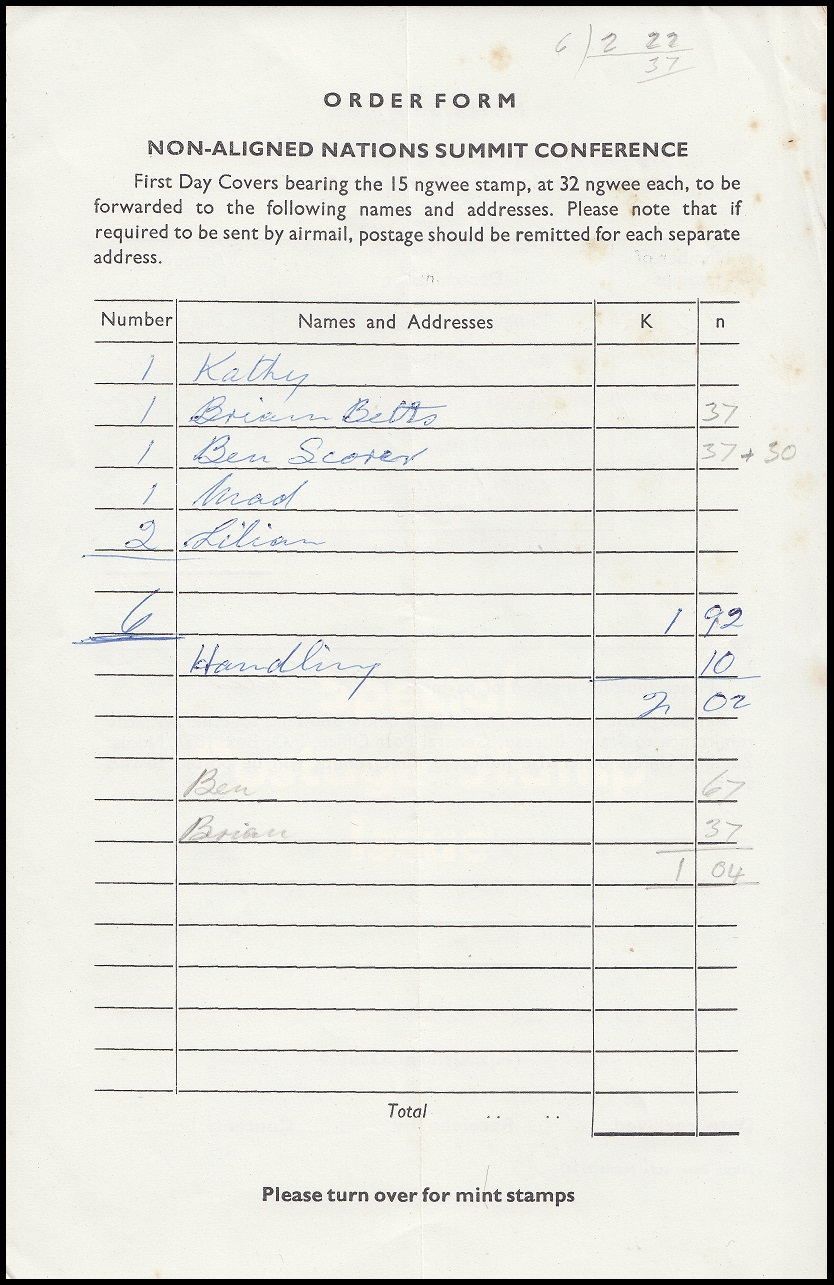 6 ) 2 22
37
ORDER FORM
NON-ALIGNED NATIONS SUMMIT CONFERENCE
First Day Covers bearing the 15 ngwee stamp, at 32 ngwee each, to be
forwarded to the following names and addresses. Please note that if
required to be sent by airmail, postage should be remitted for each separate
address.
Number Names and Addresses K n
1 Kathy
1 Briam Betts 37
1 Ben Scorer 37 + 30
1
2 Lilian
6 1 92
Handling 10
2 02
Ben 67
Brian 37
1 04
Total .. ..
Please turn over for mint stamps